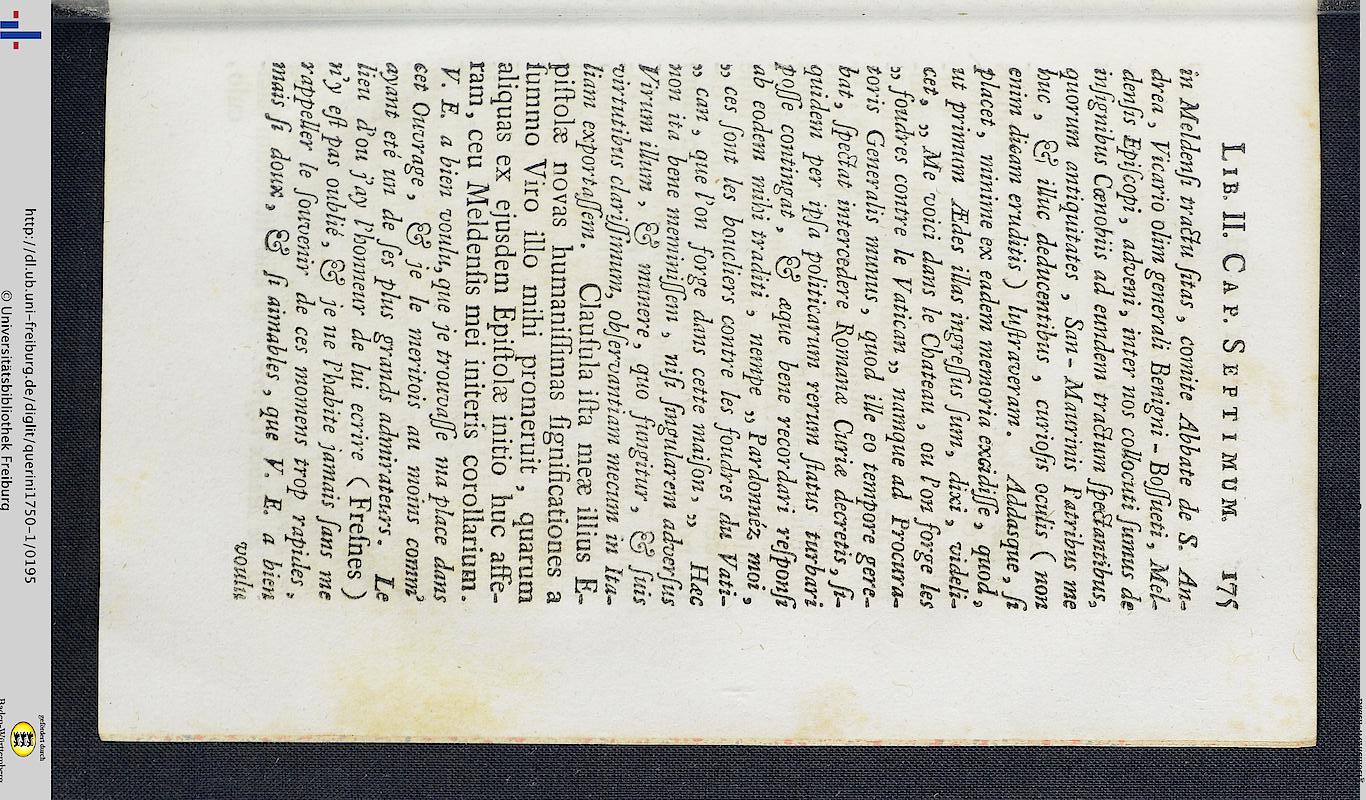 LIB. II. CAP. SEPTIMUM. 175
in Meldensi tractu sitas, comite Abbate de S. An-
drea, Vicario olim generali Benigni-Bossueti, Mel-
densis Episcopi, adveni, inter nos collocuti sumus de
insignibus Cœnobiis ad eundem tractum spectantibus,
quorum antiquitates, San-Maurinis Patribus me
huc, & illuc deducentibus, curiosis oculis (non
enim dicam eruditis) lustraveram. Addasque, si
placet, minime ex eadem memoria excidisse, quod,
ut primum Ædes illas ingressus sum, dixi, videli-
cet, „ Me voici dans le Chateau, ou l'on forge les
„ foudres contre le Vatican,„ namque ad Procura-
toris Generalis munus, quod ille eo tempore gere-
bat, spectat intercedere Romanæ Curiæ decretis, si-
quidem per ipsa politicarum rerum status turbari
posse contingat, & æque bene recordari responsi
ab eodem mihi traditi, nempe „ Pardonnéz moi,
„ ces sont les boucliers contre les foudres du Vati-
„ can, que l'on forge dans cette maison, „ Hæc
non ita bene meminissem, nisi singularem adversus
Virum illum, & munere, quo fungitur, & suis
virtutibus clarissimum, observantiam mecum in Ita-
liam exportassem. Clausula ista meæ illius E-
pistolæ novas humanissimas significationes a
summo Viro illo mihi promeruit, quarum
aliquas ex ejusdem Epistolæ initio huc affe-
ram, ceu Meldensis mei initeris corollarium.
V. E. a bien voulu, que je trouvasse ma place dans
cet Ouvrage, & je le meritois au moins comm'
ayant eté un de ses plus grands admirateurs. Le
lieu d'ou j'ay l'honneur de lui ecrire (Fresnes)
n'y est pas oublié, & je ne l'habite jamais sans me
rappeller le souvenir de ces momens trop rapides,
mais si doux, & si aimables, que V. E. a bien
voulu
http://dl.ub.uni-freiburg.de/diglit/querini1750-1/0195
© Universitätsbibliothek Freiburg
gefördert durch
Baden-Württemberg